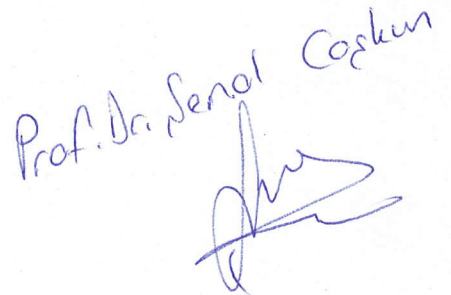 Prof. Dr. Şenol Coşkun